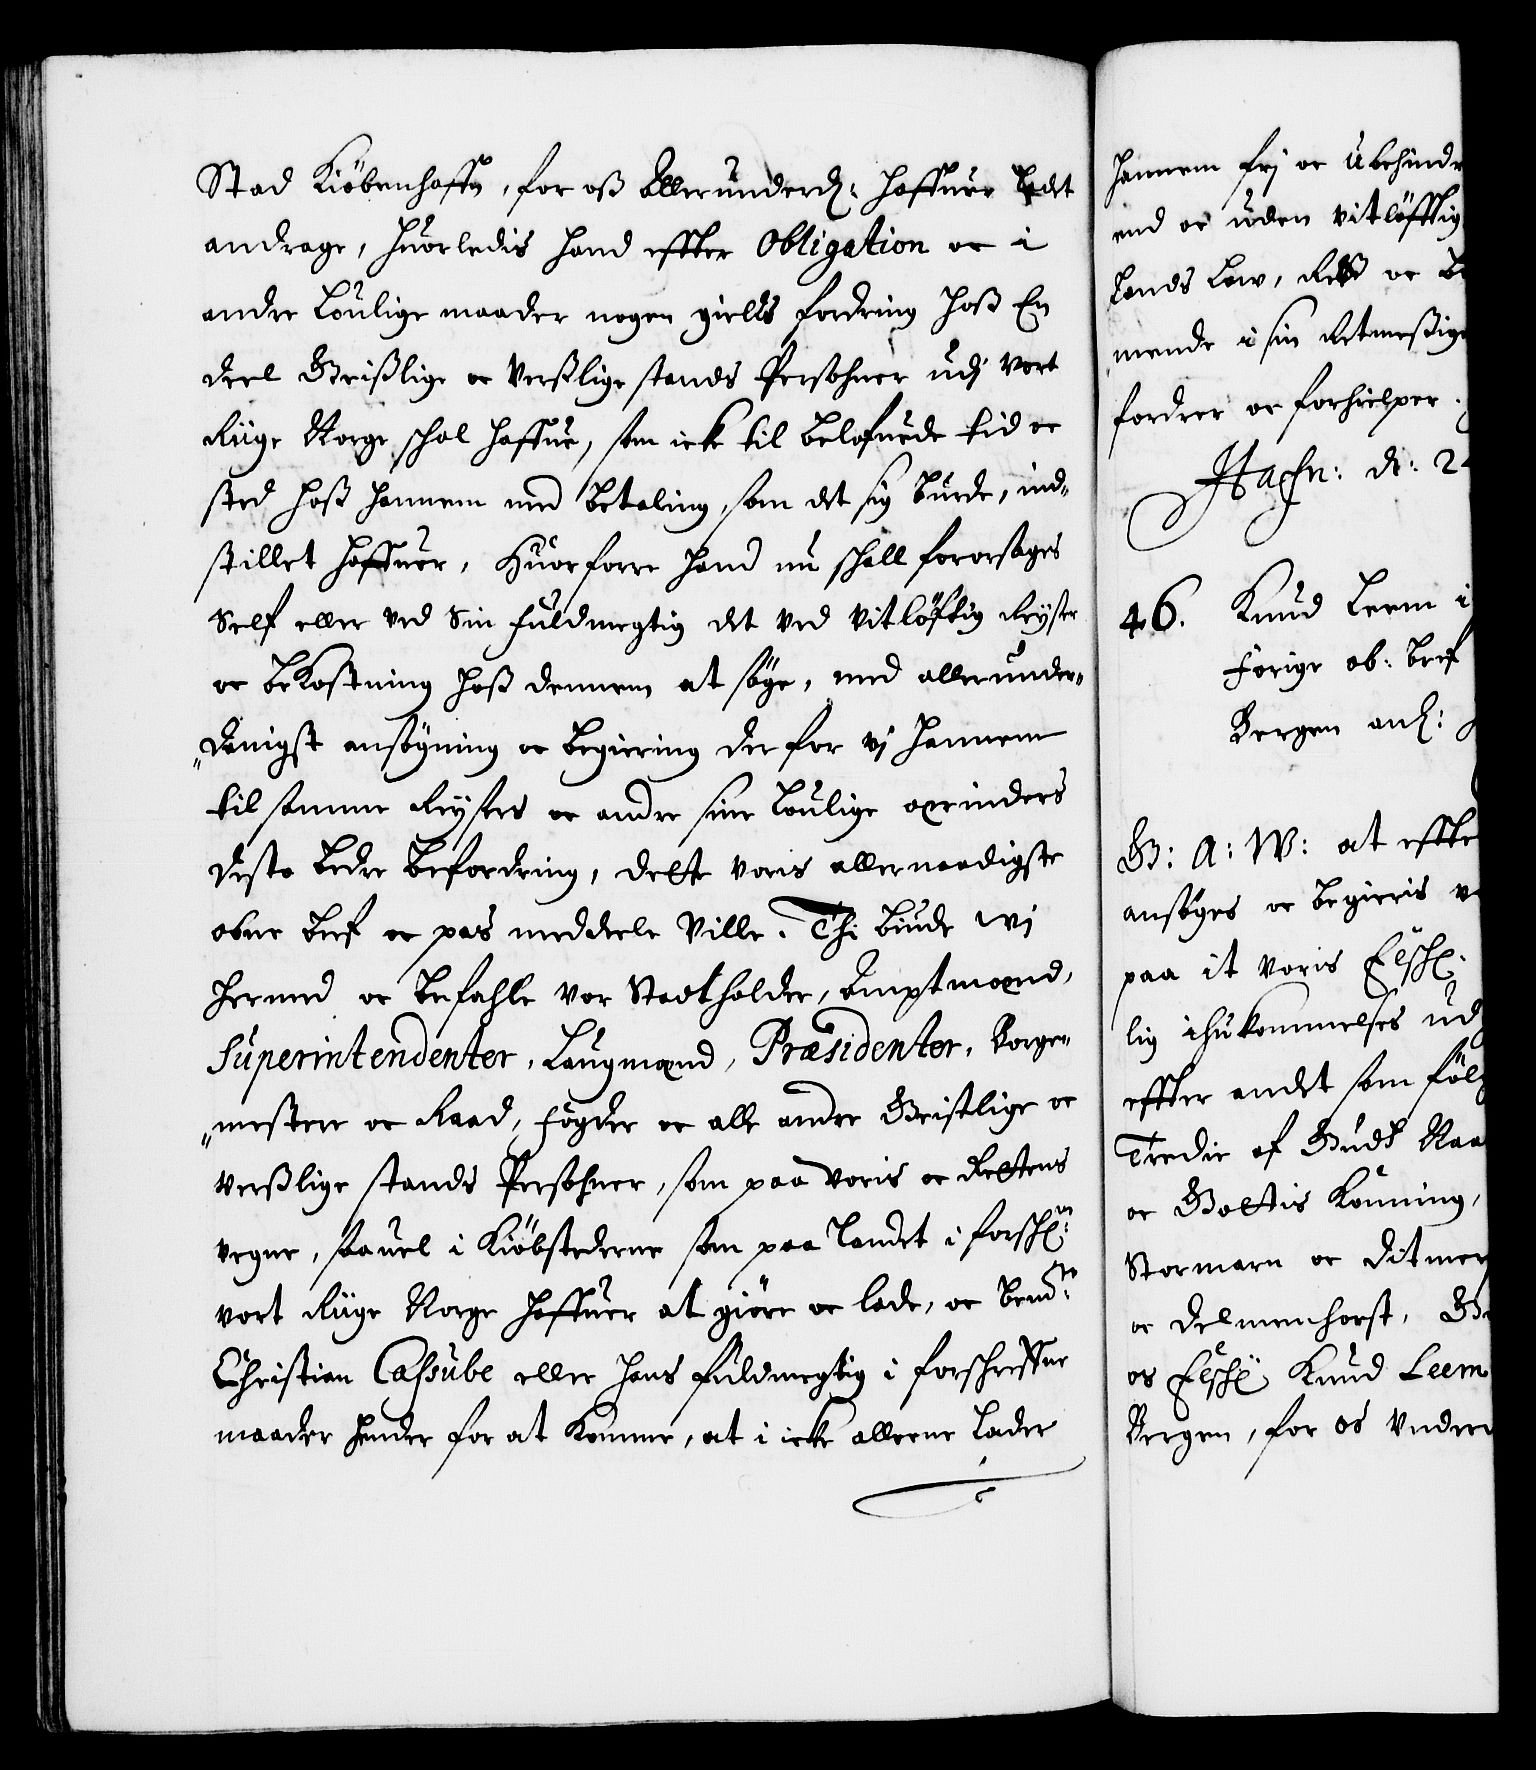 Stad Kiöbenhaffn, for oß Allerunderd: haffuer ladt
andrage, huorledis hand effter Obligation oc i
andre Loulige maader nogen gields fordring hoß En
deel Geistlige oc Verßlige stands Persohner udj vort
Riige Norge schal haffue, som icke til belofuede tid oc
sted hoß hannem med betaling, som det sig burde, ind-
stillet haffuer, Huorforre hand nu schall foraarsages
Self eller ved Sin fuldmegtig det ved vitlöfftig Reyser
oc bekostning hoß dennem at söge, med allerunder-
danigst ansögning oc begiering der for vj hannem
til samme Reyses oc andre sine loulige ærinders
desto bedre befordring, dette voris allernaadigste
obne bref oc pas meddeele Ville. Thi biude wj
hermed oc befahle vor Stadtholder, Amptmænd,
Superintendenter, Laugmænd, Præsidenter, Borge-
mestere oc Raad, fogder oc alle andre Geistlige oc
verßlige stands Persohner, som paa voris oc Rettens
vegne, saauel i Kiöbstederne som paa landet i forschr:
vort Riige Norge haffuer at giöre oc lade, oc bemte:
Christian Cassube eller hans fuldmegtig i forschreffne
maader hender for at komme, at i icke alleene lader
hannem frj oc Ubehindr
end oc uden vitlöfftig
Lands Low, Reß oc
mende i sin Retmeßige
fordrer oc forhielper.
Hafn: d: 2
46. Knud Leem i
forige ob: bref
Bergen anl:
G: A: W: at effte
ansöges oc begieris
paa it voris Elschl.
lig ihukommelses ud
effter andet som föl
Tredie af Guds Naa
oc Gottis Konning,
Stormarn oc Ditmer
oc Delmenhorst, G
os Elschl: Knud Leem
Bergen, for os Undere